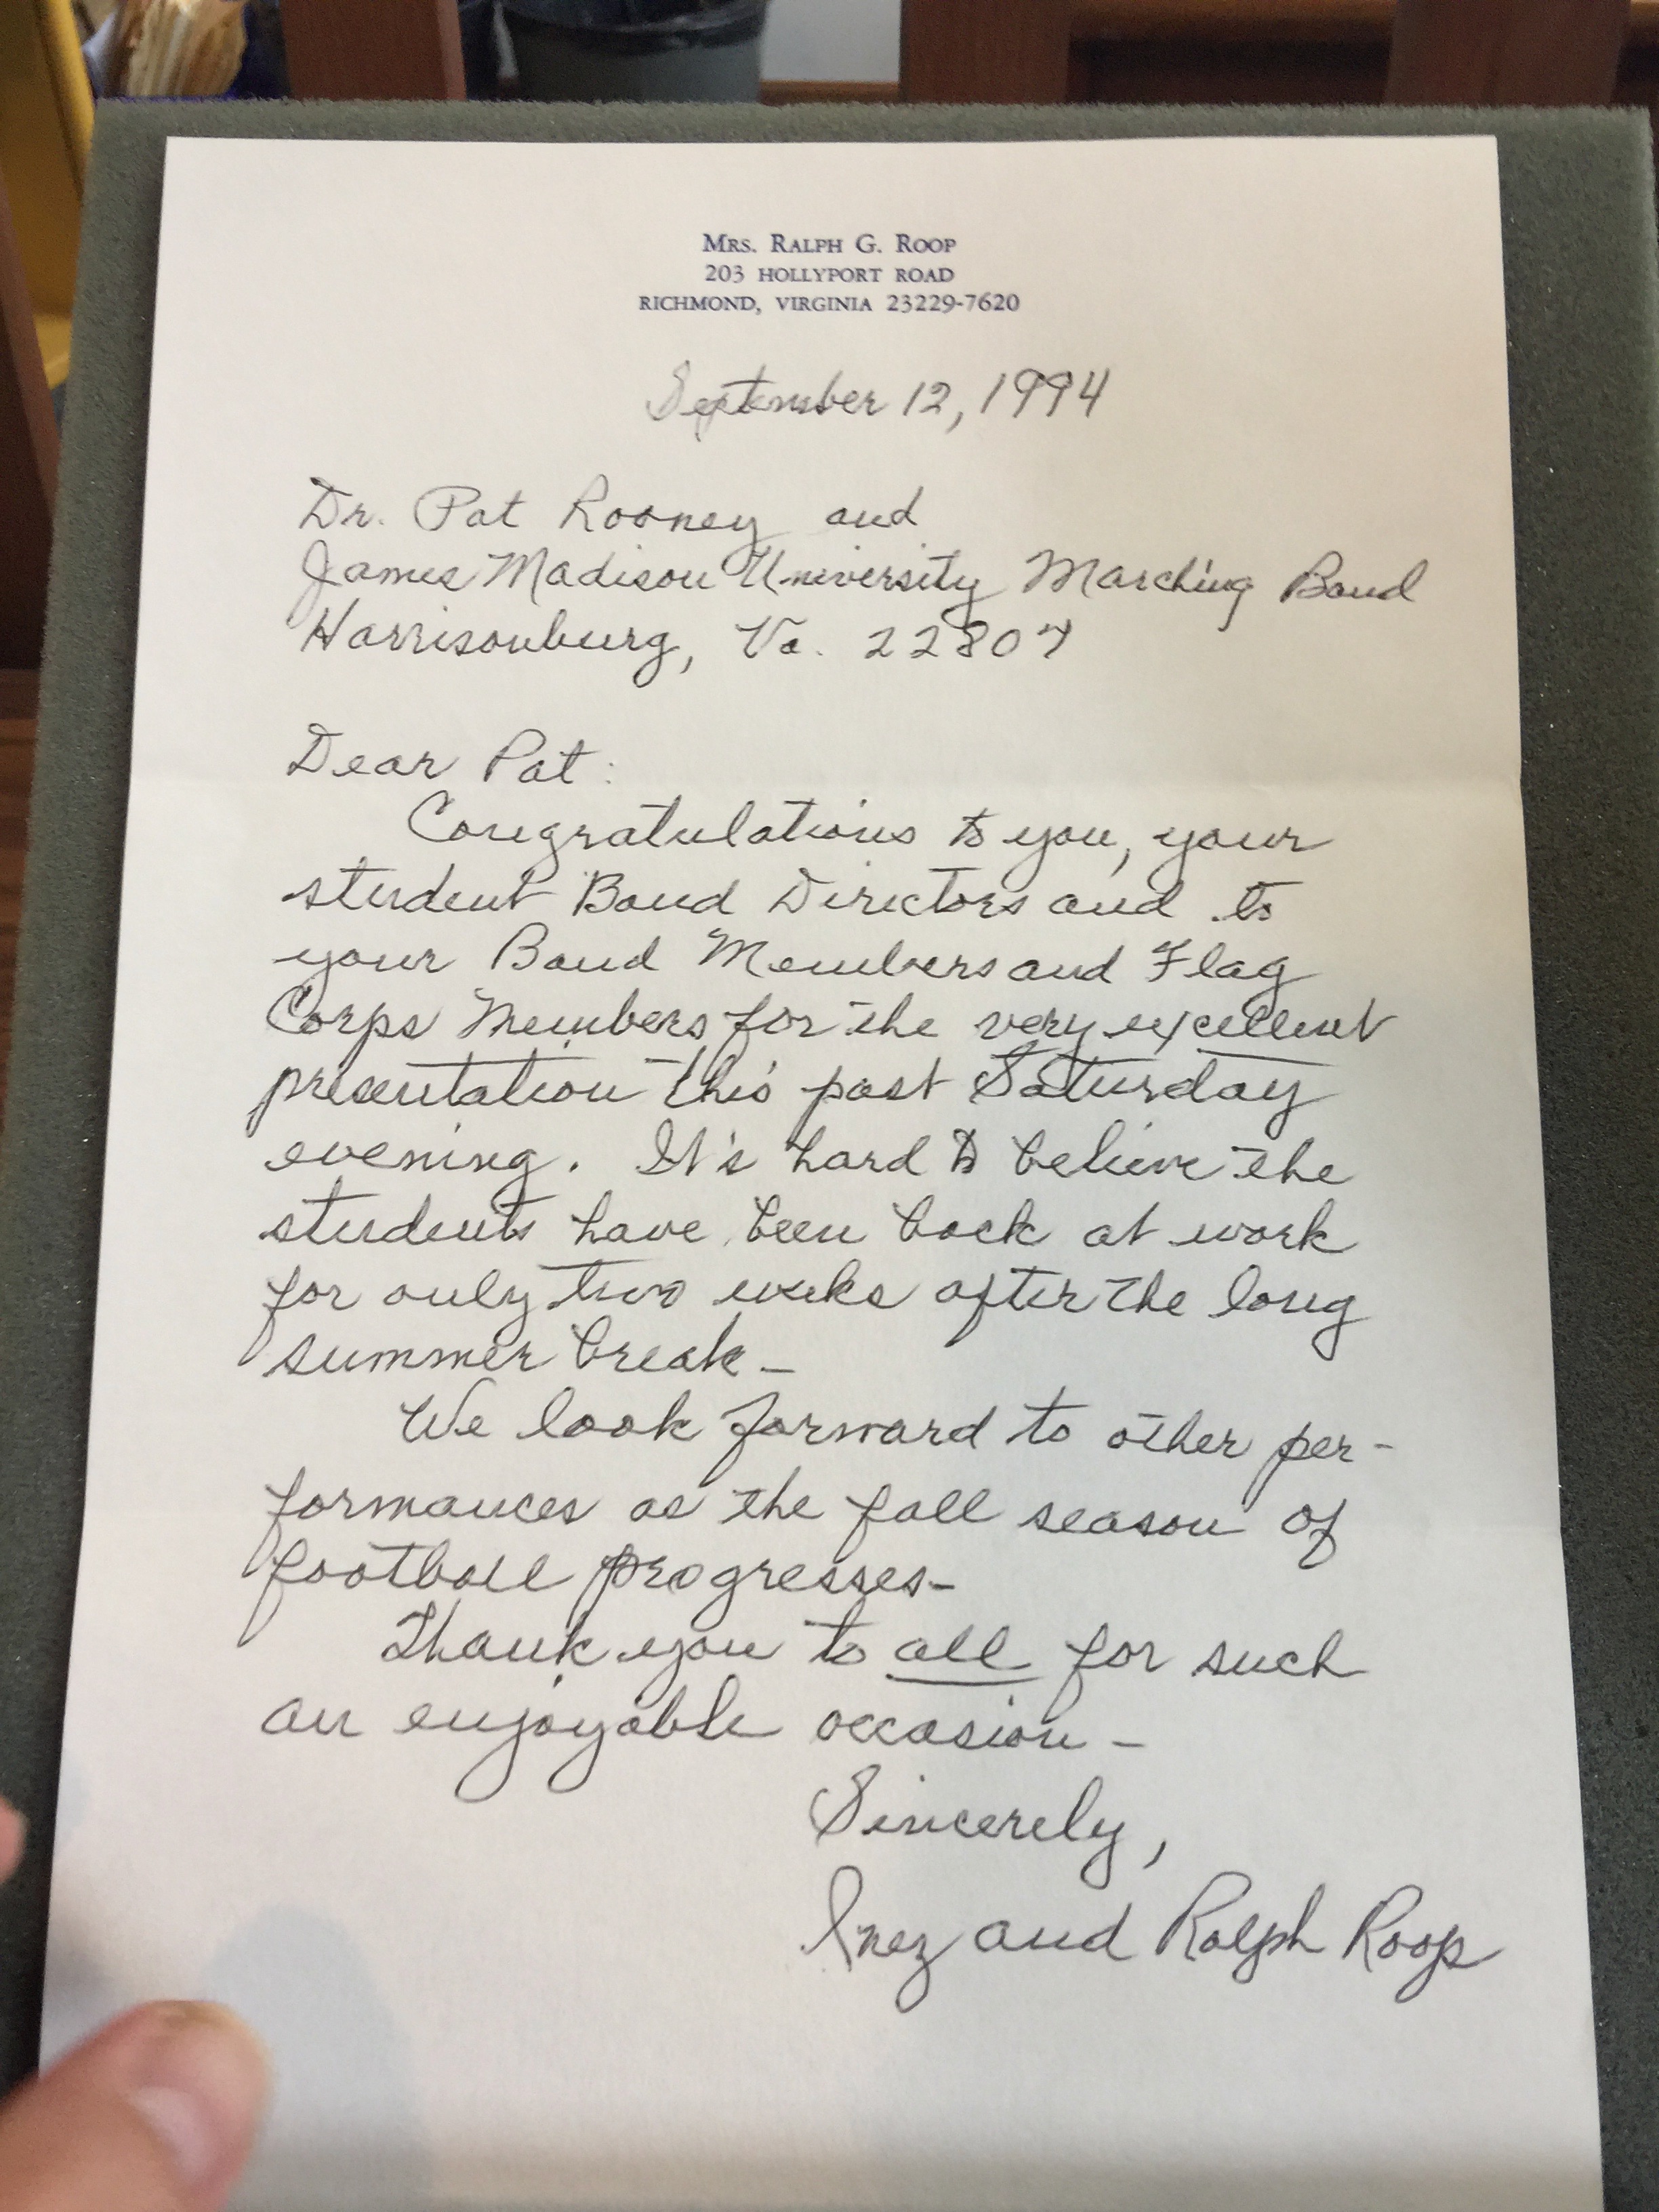 MRS. RALPH G. ROOP
203 HOLLYPORT ROAD
RICHMOND, VIRGINIA 23229-7620
September 12, 1994
Dr. Pat Rooney and
James Madison University Marching Band
Harrisonburg, Va. 22807
Dear Pat:
Congratulations to you, your
student Band Directors and to
your Band Members and Flag
Corps Members for the very excellent
presentation this past Saturday
evening. It's hard to believe the
students have been back at work
for only two weeks after the long
summer break-
We look forward to other per-
formances as the fall season of
football progresses-
Thank you to all for such
an enjoyable occasion-
Sincerely,
Inez and Ralph Roop